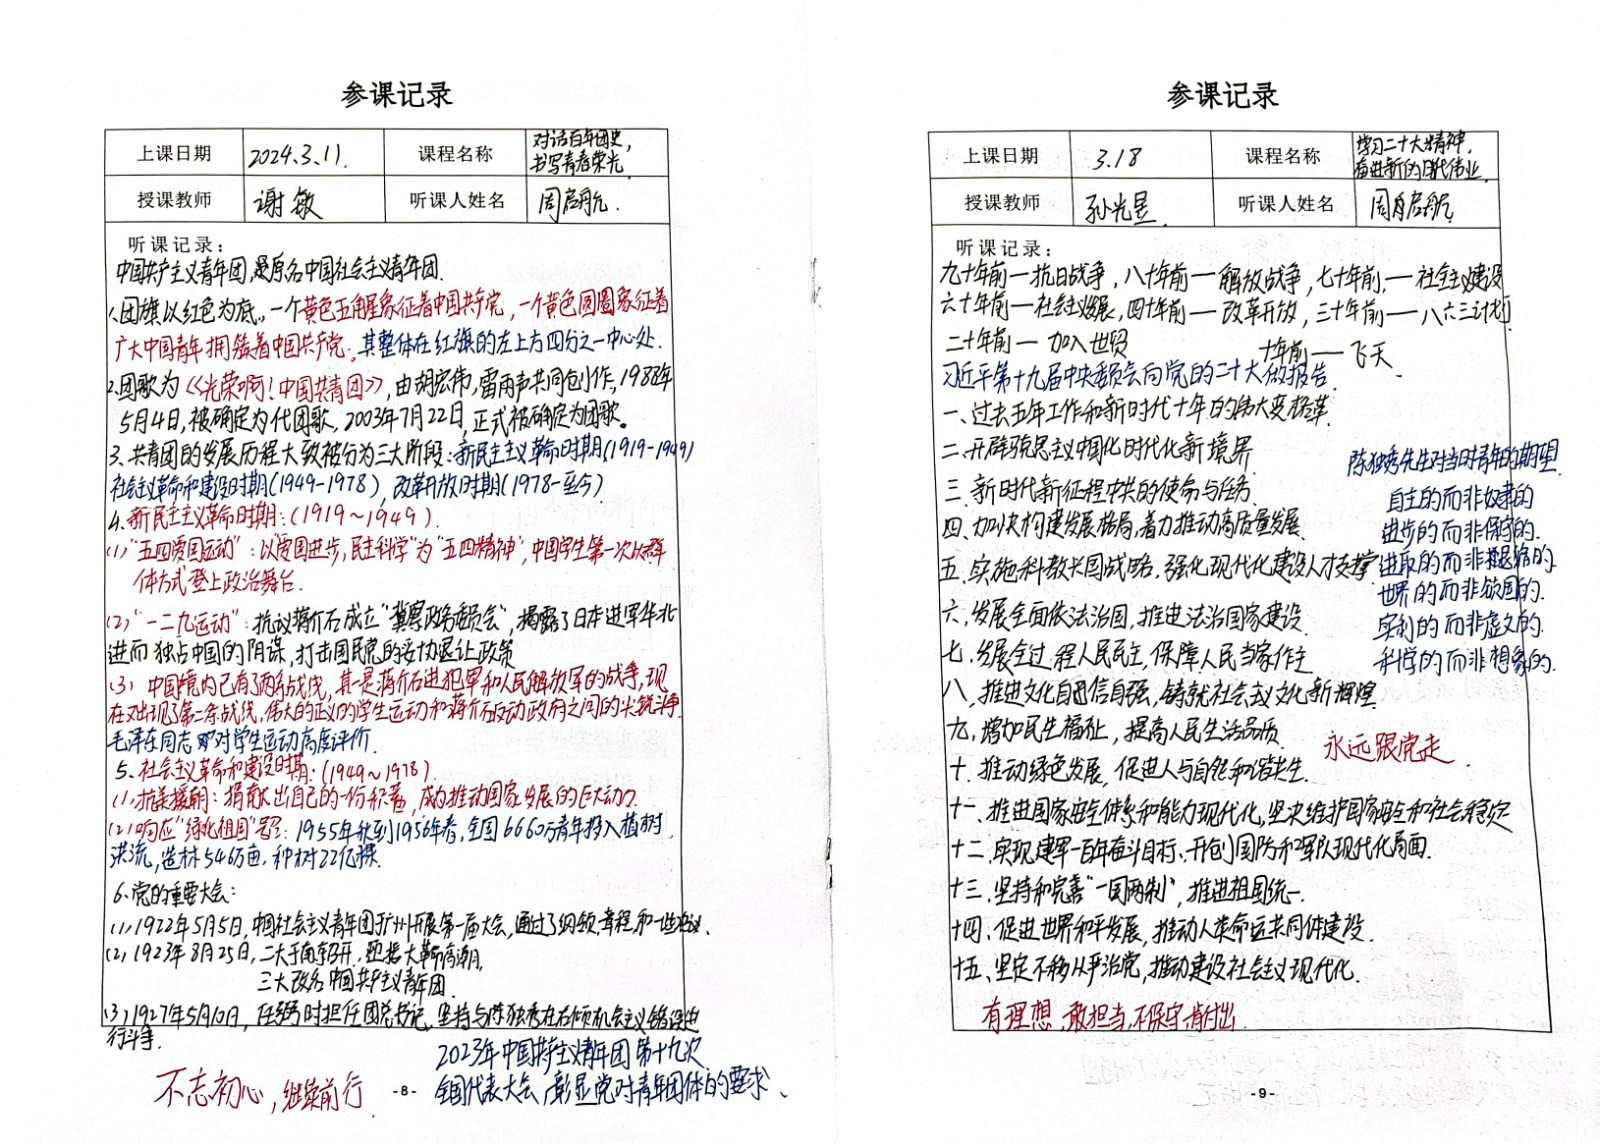 参课记录
上课日期 2024.3.11. 课程名称 对话百年团史,
书写青春荣光.
授课教师 谢敏 听课人姓名 周启航.
听课记录:
中国共产主义青年团,是原名中国社会主义青年团.
1.团旗以红色为底,一个黄色五角星象征着中国共产党,一个黄色圆圈象征着
广大中国青年拥簇着中国共产党,其整体在红旗的左上方四分之一中心处.
2.团歌为《光荣啊!中国共青团》,由胡宏伟,雷雨声共同创作,1988年
5月4日,被确定为代团歌,2003年7月22日,正式被确定为团歌。
3、共青团的发展历程大致被分为三大阶段:新民主主义革命时期(1919-1949)
社会主义革命和建设时期(1949-1978),改革开放时期(1978-至今)
4.新民主主义革命时期:(1919~1949).
(1)"五四爱国运动":以"爱国进步,民主科学"为"五四精神",中国学生第一次以群
体方式登上政治舞台.
(2)"一二九运动":抗议蒋介石成立"冀察政务委员会",揭露了日本进军华北
进而独占中国的阴谋,打击国民党的妥协退让政策
(3)中国境内已有了两条战线,其一是蒋介石进犯军和人民解放军的战争,现
在又出现了第二条战线,伟大的正义的学生运动和蒋介石反动政府之间的尖锐斗争.
毛泽东同志对学生运动高度评价.
5、社会主义革命和建设时期:(1949~1978)
(1)抗美援朝:捐献出自己的一份积蓄,成为推动国家发展的巨大动力.
(2)响应"绿化祖国"号召:1955年秋到1956年春,全国6660万青年投入植树
洪流,造林546万亩,种树22亿棵.
6.党的重要大会:
(1)1922年5月5日,中国社会主义青年团于广州开展第一届大会,通过了纲领,章程和一些决议.
(2)1923年8月25日,二大于南京召开,迎接大革命高潮,
三大改名中国共产主义青年团.
(3)1927年5月10日,任弼时担任团总书记,坚持与陈独秀在右倾机会主义错误进
行斗争.
2023年中国共产主义青年团第十九次
全国代表大会,彰显党对青年团体的要求、
不忘初心,继续前行
-8-
参课记录
上课日期 3.18 课程名称 学习二十大精神,
奋进新的时代伟业.
授课教师 孙光昱 听课人姓名 周启航
听课记录:
九十年前—抗日战争,八十年前—解放战争,七十年前,—社会主义建设
六十年前—社会主义发展,四十年前—改革开放,三十年前—八六三计划
二十年前—加入世贸 十年前—飞天
习近平第十九届中央委员会向党的二十大做报告.
一、过去五年工作和新时代十年的伟大变革
二、开辟马克思主义中国化时代化新境界
三、新时代新征程中共的使命与任务
四、加快构建发展格局,着力推动高质量发展
五、实施科教兴国战略,强化现代化建设人才支撑
六、发展全面依法治国,推进法治国家建设
七、发展全过程人民民主,保障人民当家作主
八、推进文化自信自强,铸就社会主义文化新辉煌
九、增加民生福祉,提高人民生活品质
十、推动绿色发展,促进人与自然和谐共生.
十一、推进国家安全体系和能力现代化,坚决维护国家安全和社会稳定
十二、实现建军一百年奋斗目标,开创国防和军队现代化局面.
十三、坚持和完善"一国两制",推进祖国统一.
十四、促进世界和平发展,推动人类命运共同体建设.
十五、坚定不移从严治党,推动建设社会主义现代化.
陈独秀先生对当时青年的期望
自主的而非奴隶的
进步的而非保守的.
进取的而非退缩的.
世界的而非锁国的.
实利的而非虚文的.
科学的而非想象的.
永远跟党走.
有理想,敢担当,不保守,肯付出
-9-